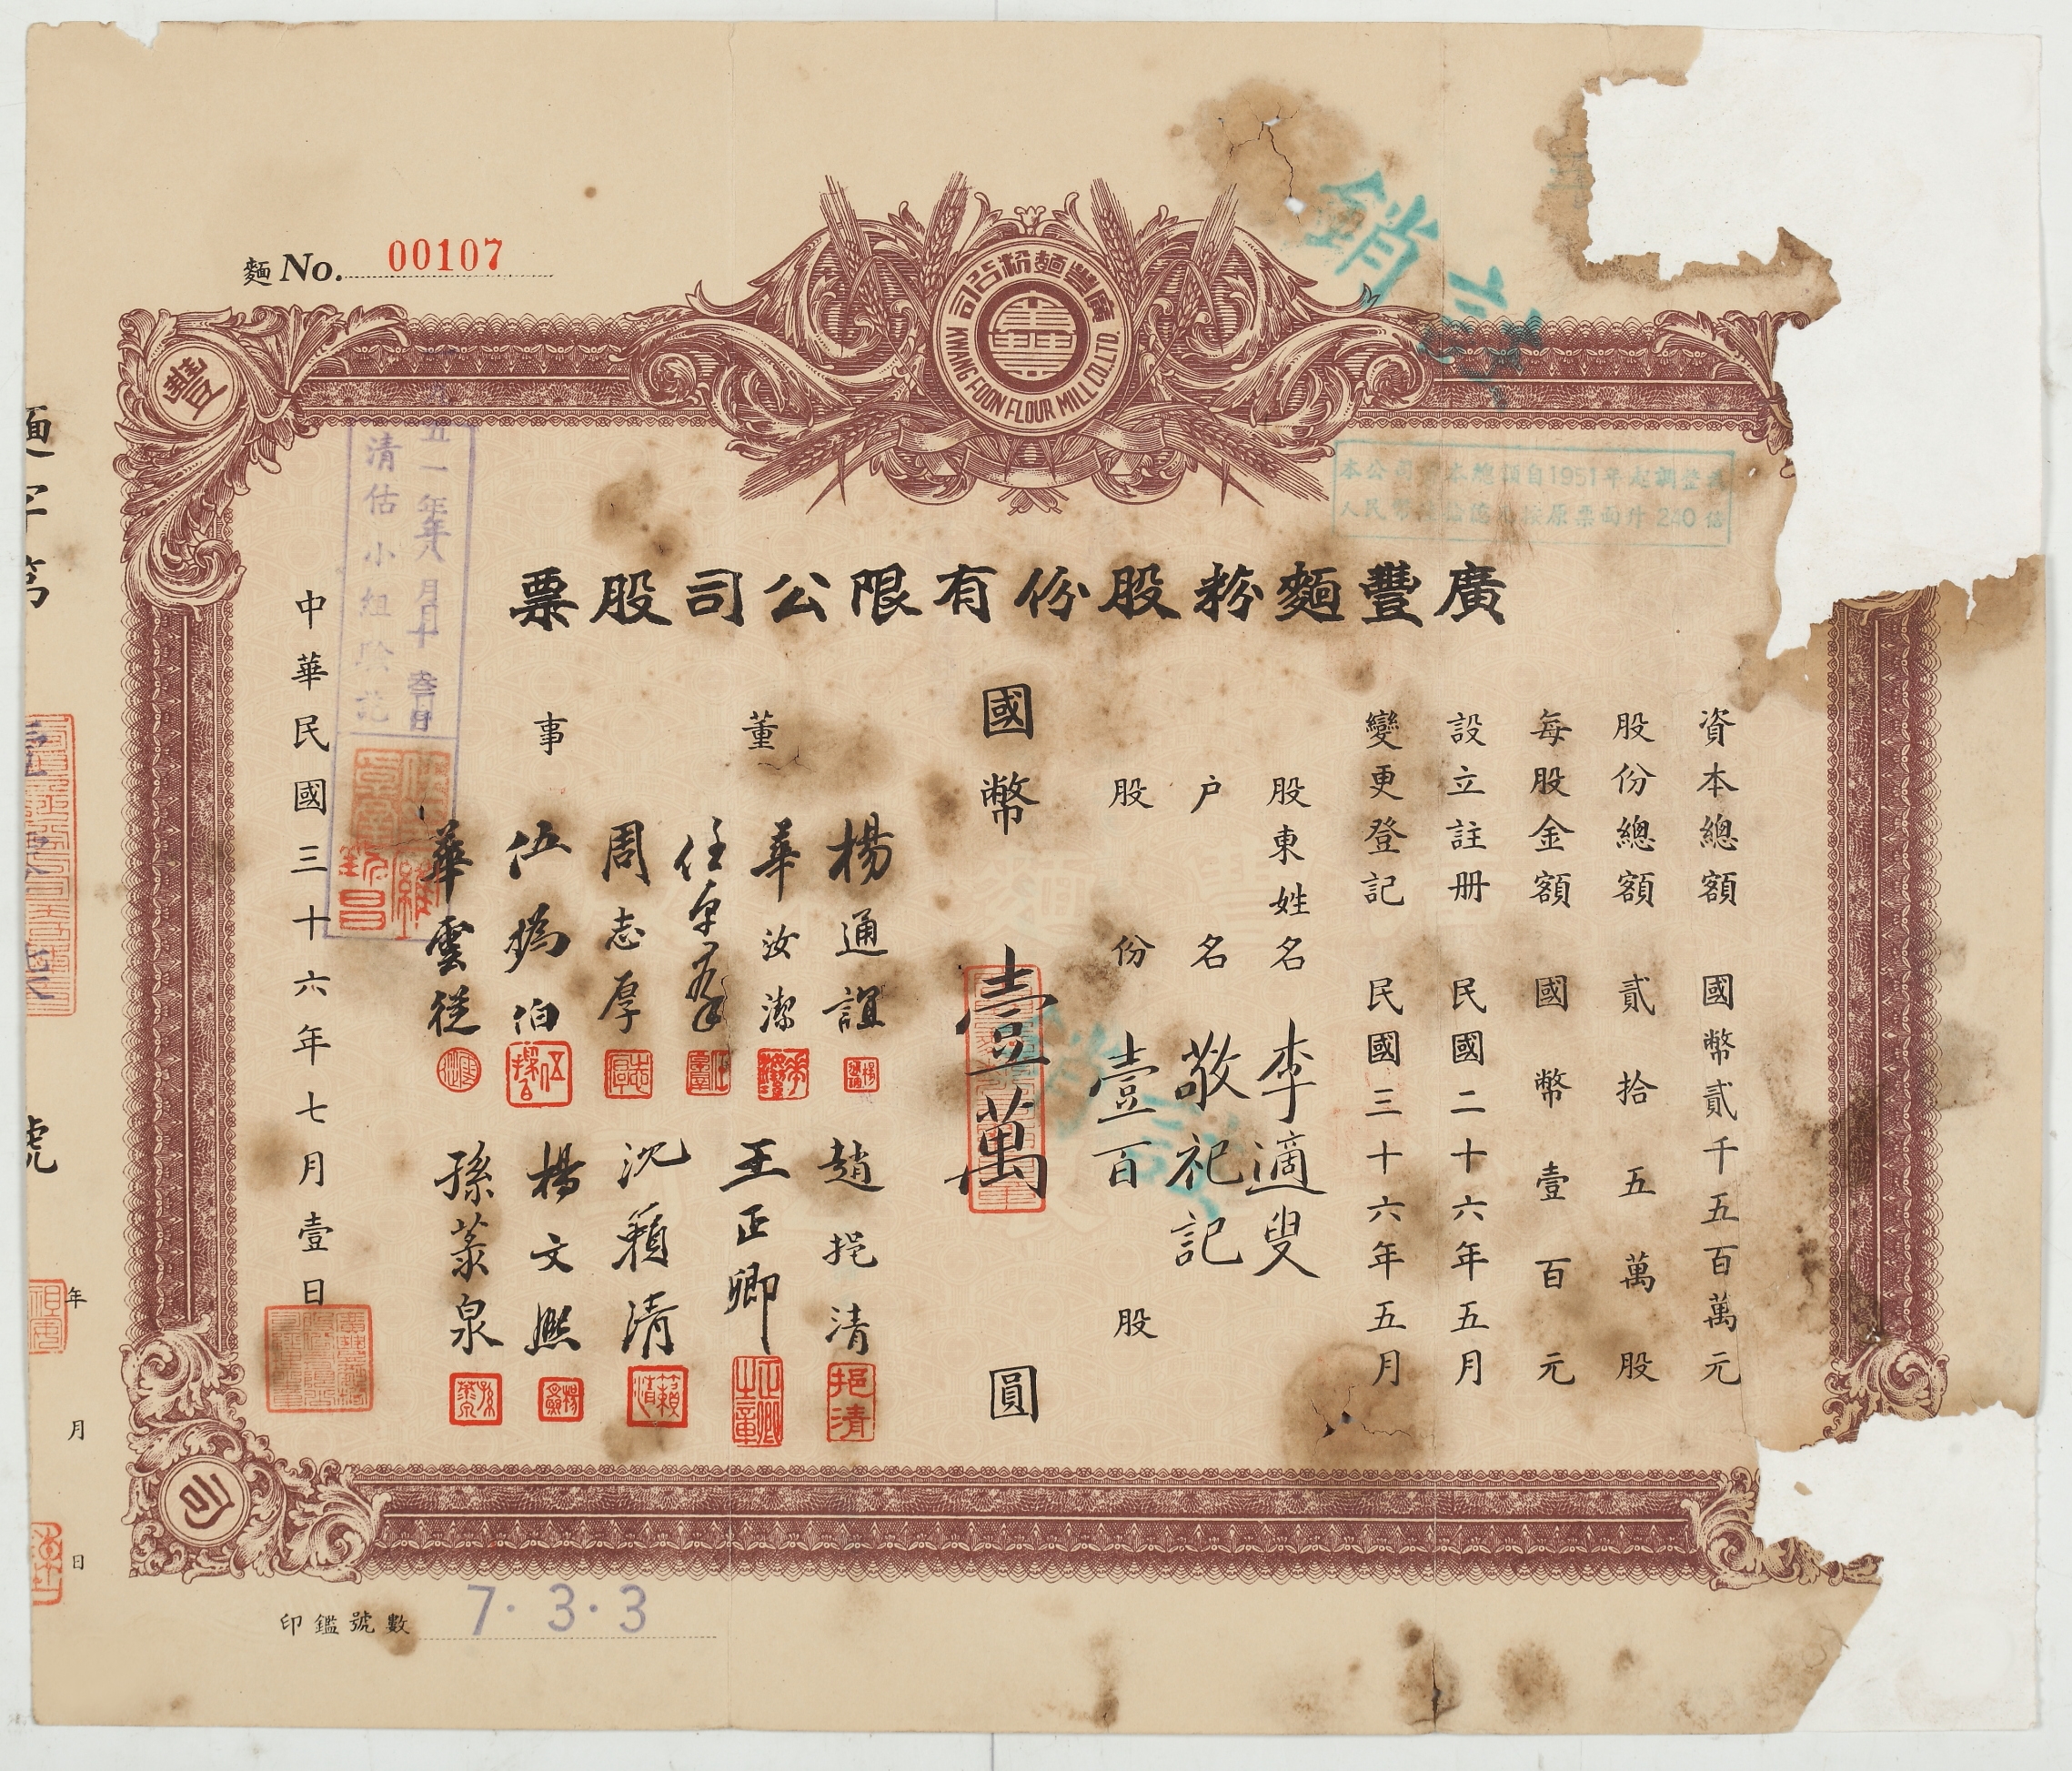 麵 No. 00107
廣豐麵粉公司
KWANG FOON FLOUR MILL CO. LTD.
豐
註銷
本公司資本總額自1951年起調整為
廣豐麵粉股份有限公司股票
資本總額 國幣貳千五百萬元
股份總額 貳拾五萬股
每股金額 國幣壹百元
設立註册 民國二十六年五月
變更登記 民國三十六年五月
股東姓名 李適叟
户名 敬祀記
股份 壹百股
國幣壹萬圓
註銷
董事
楊通誼
華汝潔
周志厚
伍撝伯
華雲從
趙挹清
王正卿
沈籟清
楊文熙
孫蒃泉
挹清
正卿之章
籟清
中華民國三十六年七月壹日
五一年八月十叁日
清估小組驗訖
麵字第
號
年
月
日
司
印鑑號數 7.3.3